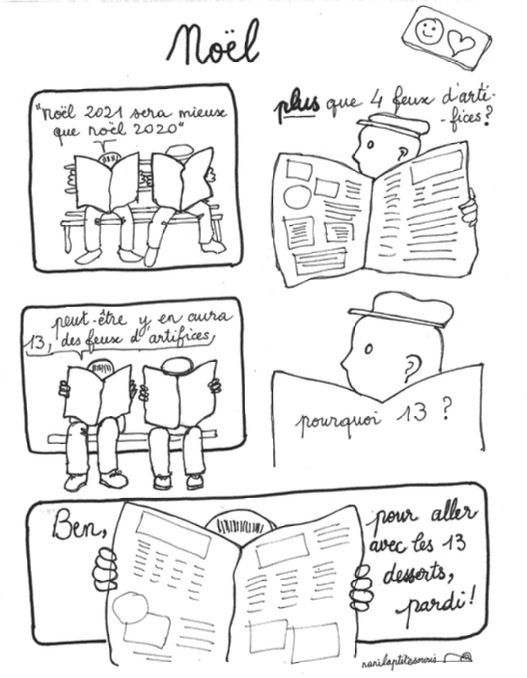 Noël
"Noël 2021 sera mieux
que noël 2020"
plus que 4 feux d'arti-
-fices?
peut-être y en aura
13, des feux d'artifices,
pourquoi 13 ?
Ben,
pour aller
avec les 13
desserts,
pardi!